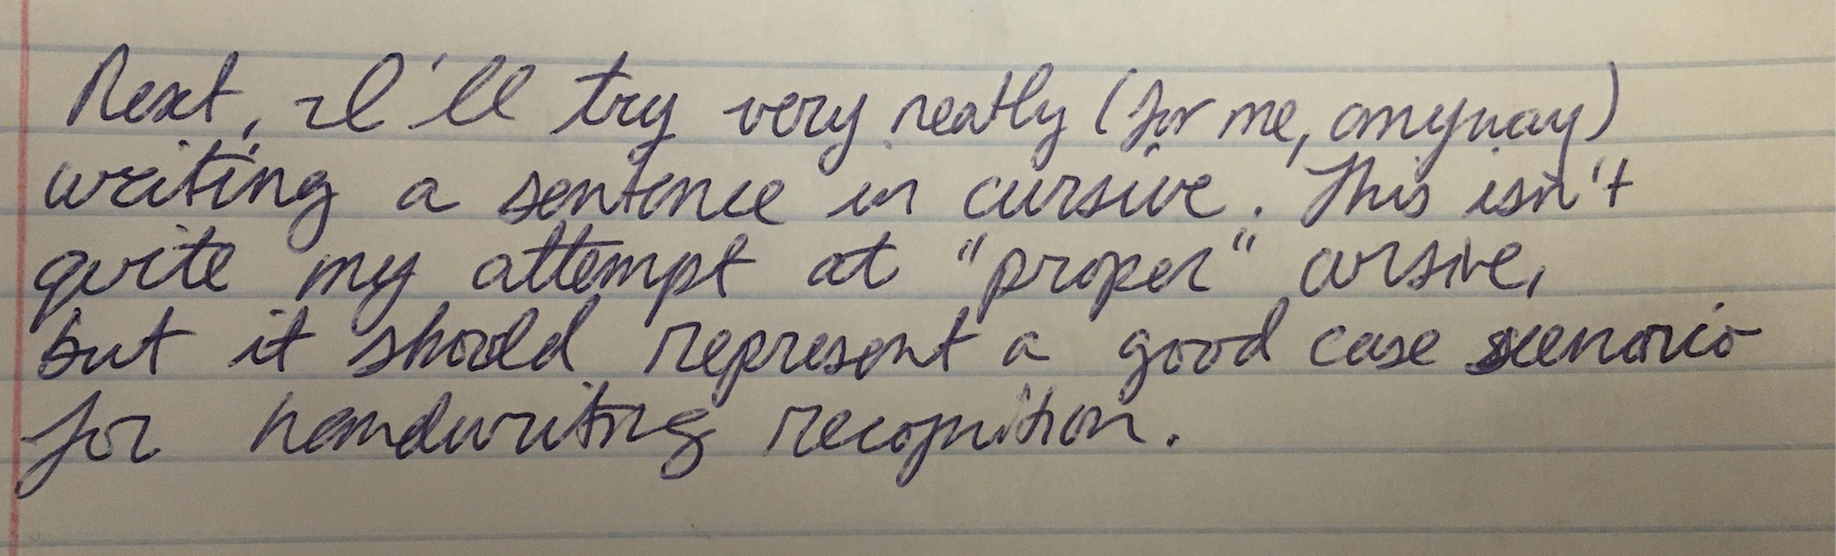 Next, I'll try very neatly (for me, anyway)
writing a sentence in cursive. This isn't
quite my attempt at "proper" cursive,
but it should represent a good case scenario
for handwriting recognition.